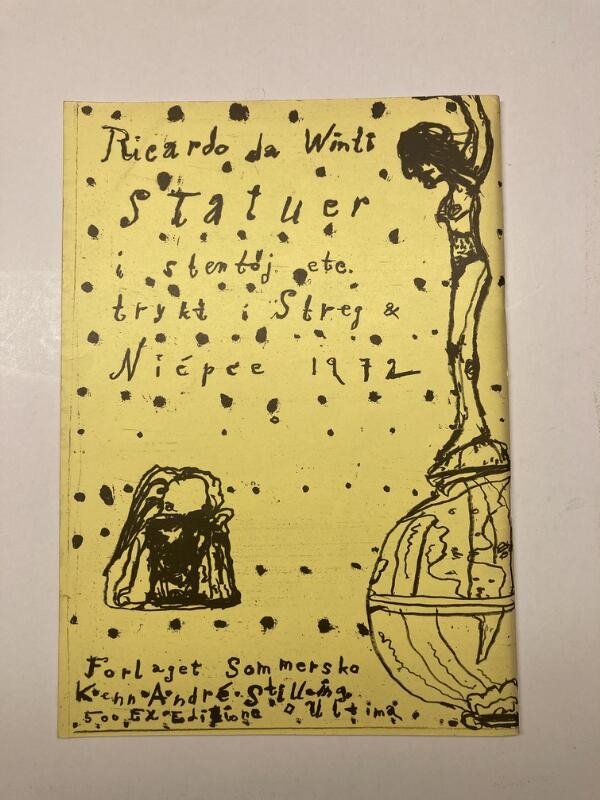 Ricardo da Winti
Statuer
i stentøj etc.
trykt i Streg &
Niépce 1972
Forlaget Sommersko
Kenn-André-Stilling
500 EX Edizione Ultima